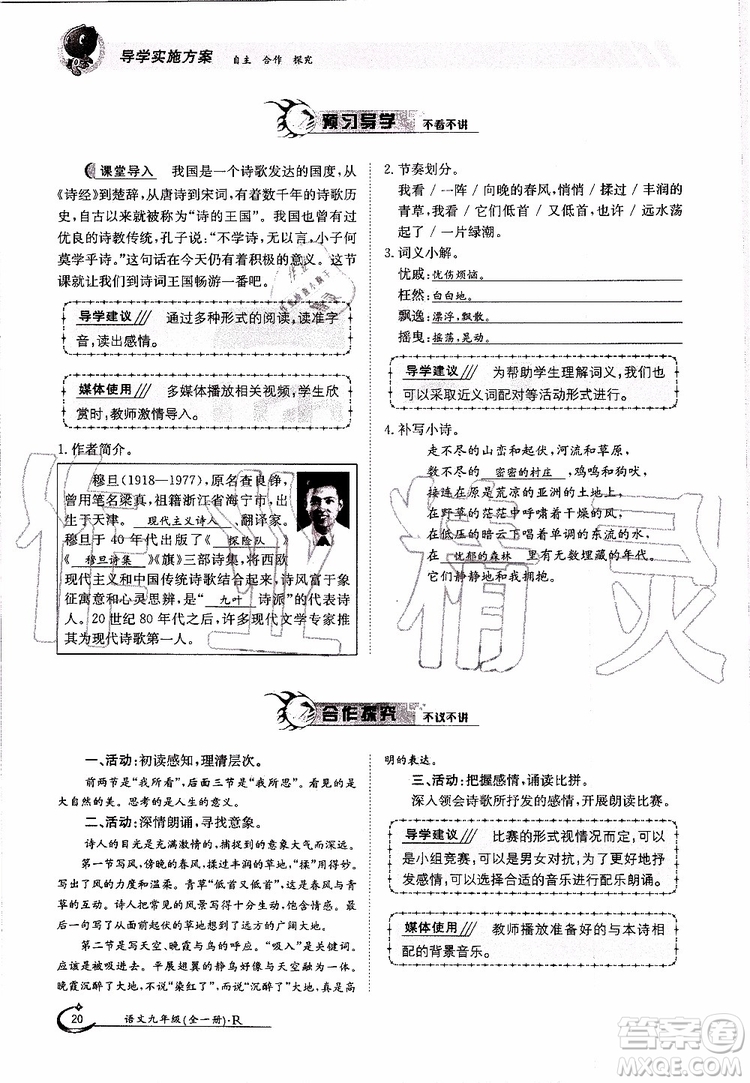 导学实施方案 自主 合作 探究
预习导学 不看不讲
课堂导入 我国是一个诗歌发达的国度,从
《诗经》到楚辞,从唐诗到宋词,有着数千年的诗歌历
史,自古以来就被称为“诗的王国”。我国也有过
优良的诗教传统,孔子说:“不学诗,无以言,小子何
莫学乎诗。”这句话在今天仍有着积极的意义。这节
课就让我们到诗词王国畅游一番吧。
导学建议 通过多种形式的阅读,读准字
音,读出感情。
媒体使用 多媒体播放相关视频,学生欣
赏时,教师激情导入。
1. 作者简介。
穆旦(1918—1977),原名查良铮,
曾用笔名梁真,祖籍浙江省海宁市,出
生于天津。现代主义诗人、翻译家。
穆旦于 40 年代出版了《 探险队 》
《 穆旦诗集 》《旗》三部诗集,将西欧
现代主义和中国传统诗歌结合起来,诗风富于象
征寓意和心灵思辨,是“ 九叶 诗派”的代表诗
人。20 世纪 80 年代之后,许多现代文学专家推其
为现代诗歌第一人。
2. 节奏划分。
我看 / 一阵 / 向晚的春风,悄悄 / 揉过 / 丰润的
青草,我看 / 它们低首 / 又低首,也许 / 远水荡
起 / 一片绿潮。
3. 词义小解。
忧戚:忧伤烦恼。
枉然:白白地。
飘逸:漂浮,飘散。
摇曳:摇荡,晃动。
导学建议 为帮助学生理解词义,我们也
可以采取近义词配对等活动形式进行。
4. 补写小诗。
走不尽的山峦和起伏,河流和草原,
数不尽的 密密的村庄 ,鸡鸣和狗吠,
接连在原是荒凉的亚洲的土地上,
在野草的茫茫中呼啸着干燥的风,
在低压的暗云下唱着单调的东流的水,
在 忧郁的森林 里有无数埋藏的年代。
它们静静地和我拥抱。
合作探究 不议不讲
一、活动:初读感知,理清层次。
前两节是“我所看”,后面三节是“我所思”。看是
大自然的美。思考的是人生的意义。
二、活动:深情朗诵,寻找意象。
诗人的目光是充满激情的,捕捉到的意象大气而深远。
第一节写风,傍晚的春风,揉过丰润的草地,“揉”用得妙。
写出了风的力度和温柔。青草“低首又低首”,这是春风与青
草的互动。而草的起伏像绿潮一样,让诗人联想到远水。最
后一句,写出了从面前起伏的草地到远方的广阔大地。
第二节是写天空、晚霞与鸟的呼应。“吸入”是关键词。
应该是被这种安静所吸引。平展翅翼的静鸟好像与天空融为一体。
晚霞沉醉了大地,不说“染红了”,而说“沉醉了大地”,真是高
明的表达。
三、活动:把握感情,诵读比拼。
深入领会诗歌所抒发的感情,开展朗读比赛。
导学建议 比赛的形式视情况而定,可以
是小组竞赛,可以是男女对抗;为了更好地抒
发感情,可以选择合适的音乐进行配乐朗诵。
媒体使用 教师播放准备好的与本诗相
配的背景音乐。
20 语文九年级(全一册)·R
作业精灵
答案圈
MXQE.COM